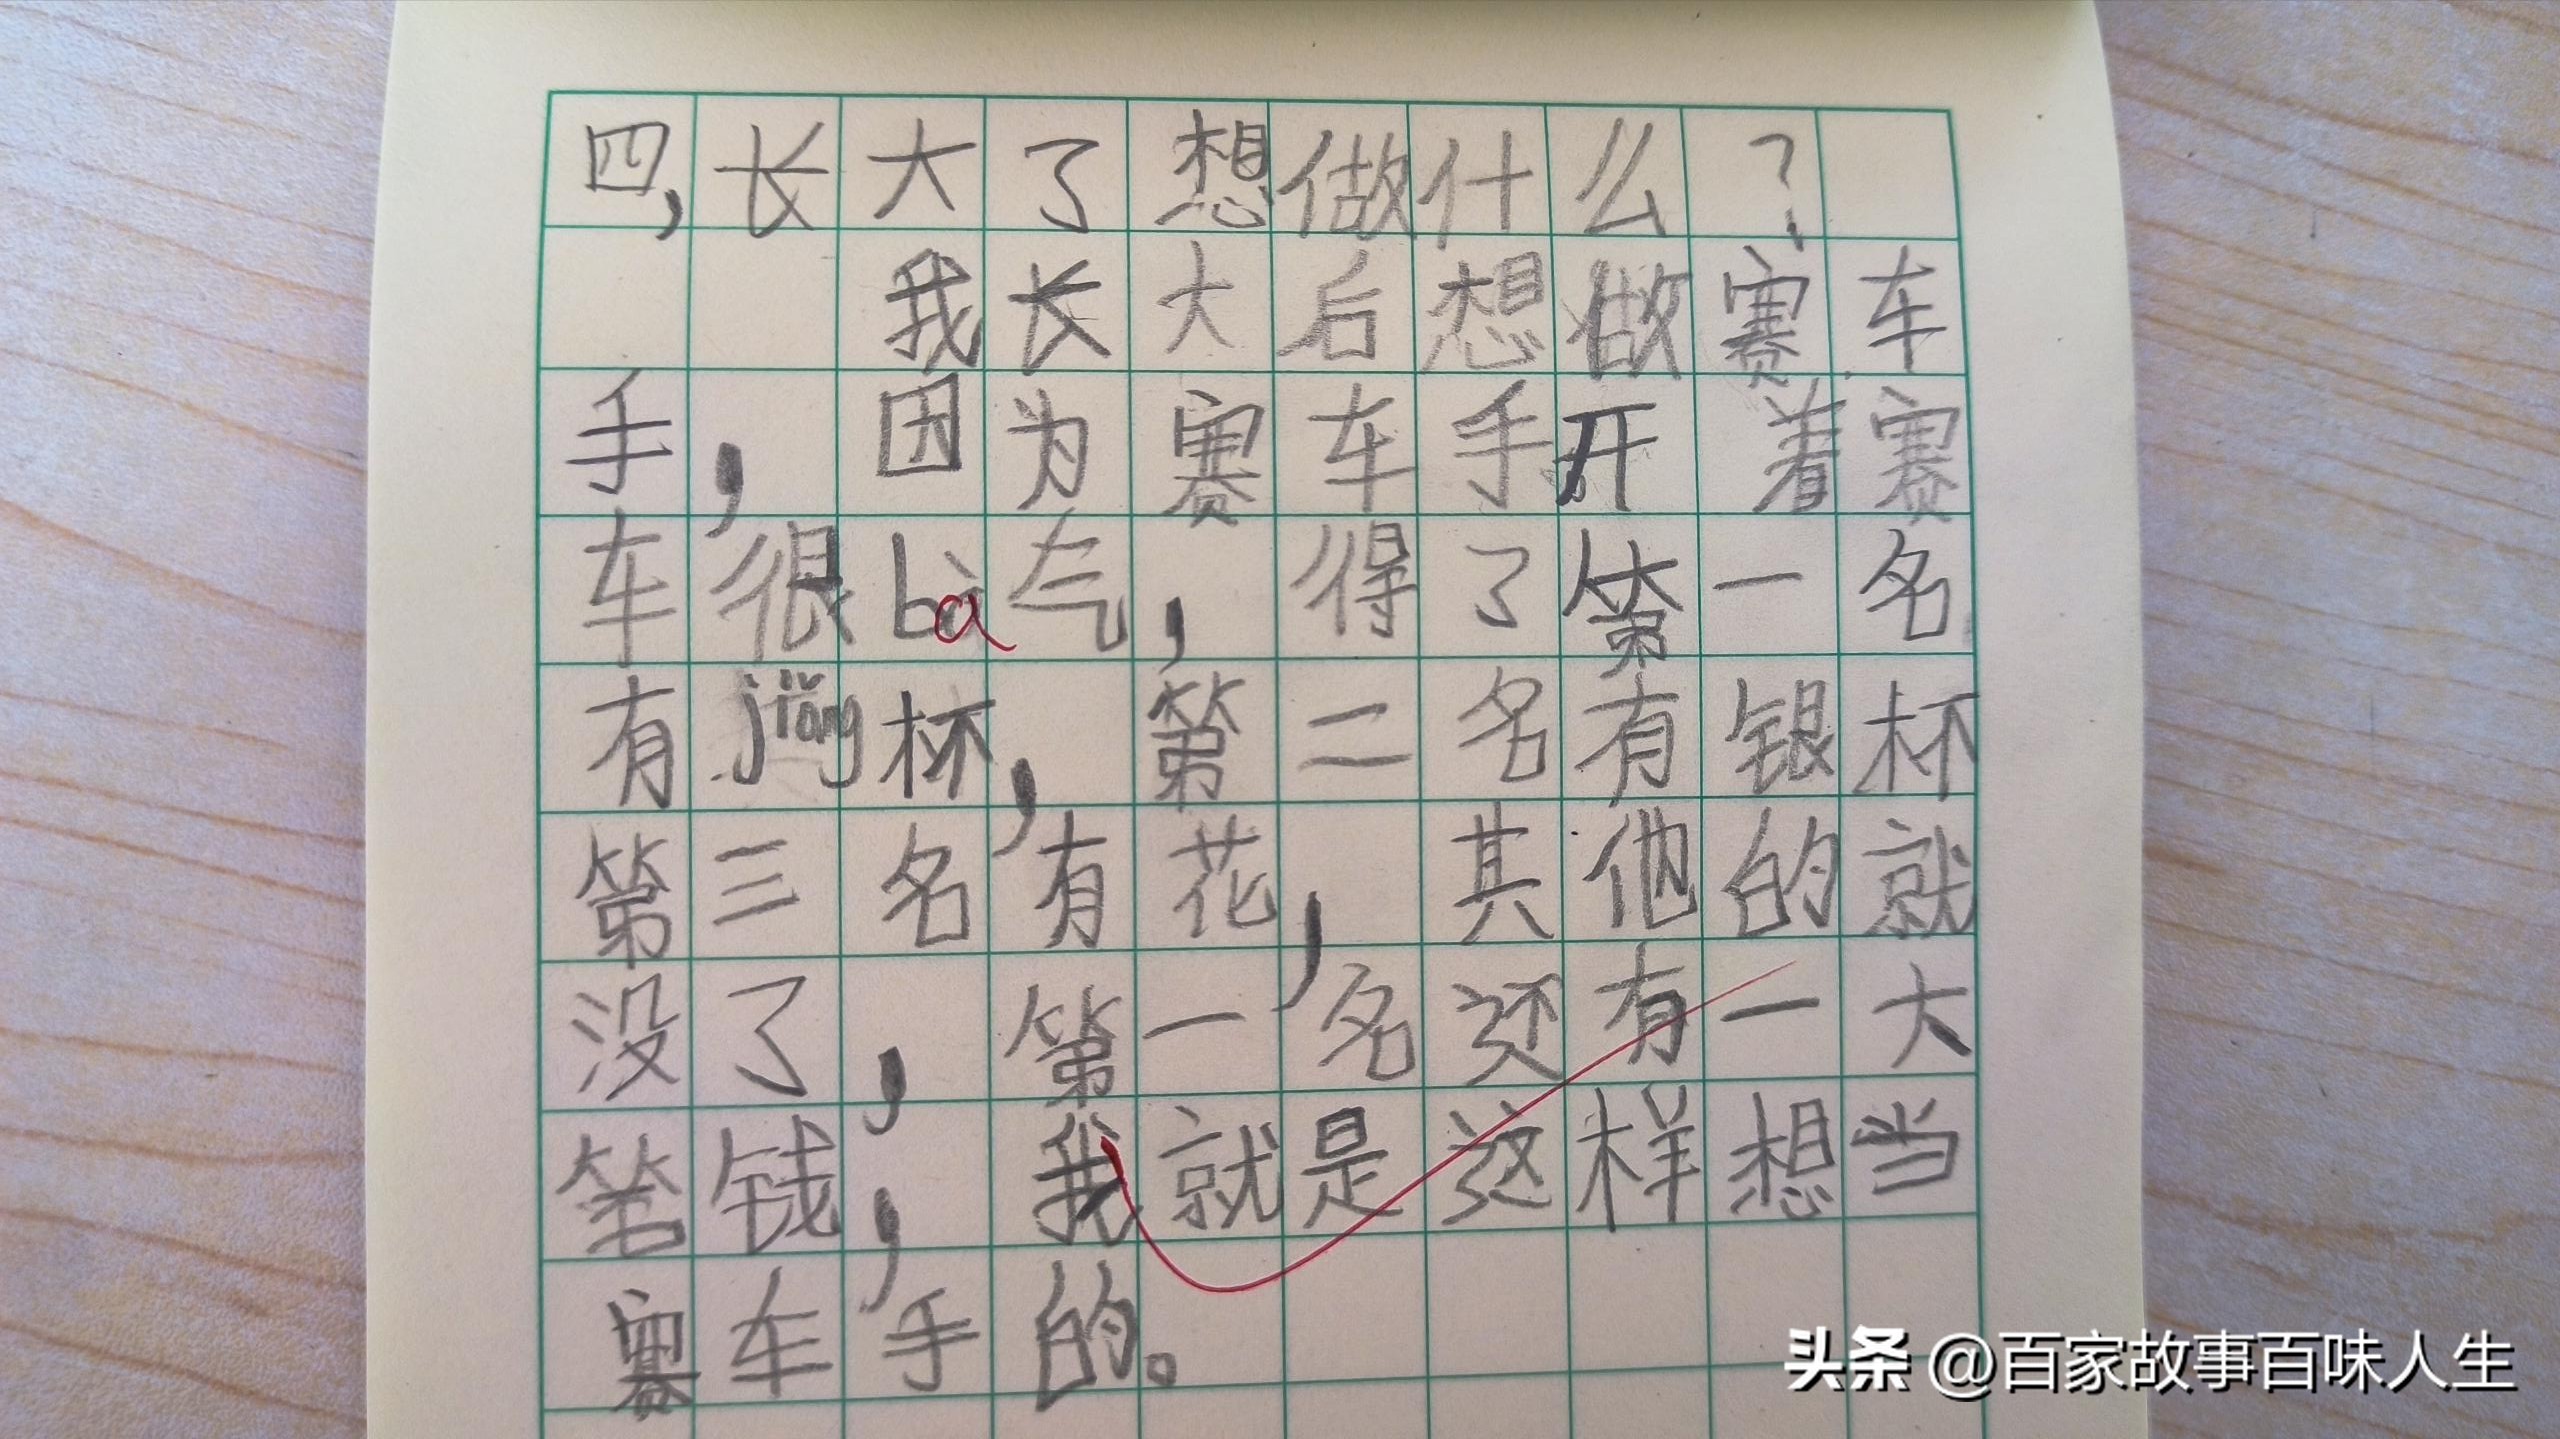 四,长大了想做什么?
我长大后想做赛车
手,因为赛车手开着赛
车很bà气,得了第一名
有jiǎng杯,第二名有银杯
第三名有花,其他的就
没了,第一名还有一大
笔钱,我就是这样想当
赛车手的。
头条 @百家故事百味人生